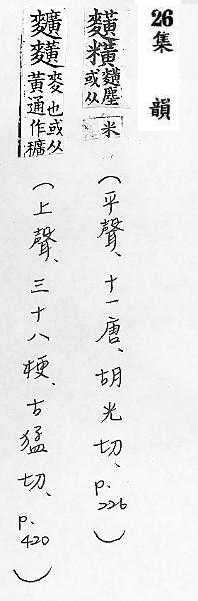 26 集韻
或从
米
(平聲、十一唐、胡光切、p.226)
麥也或从
黃通作穬
(上聲、三十八梗、古猛切、p.420)